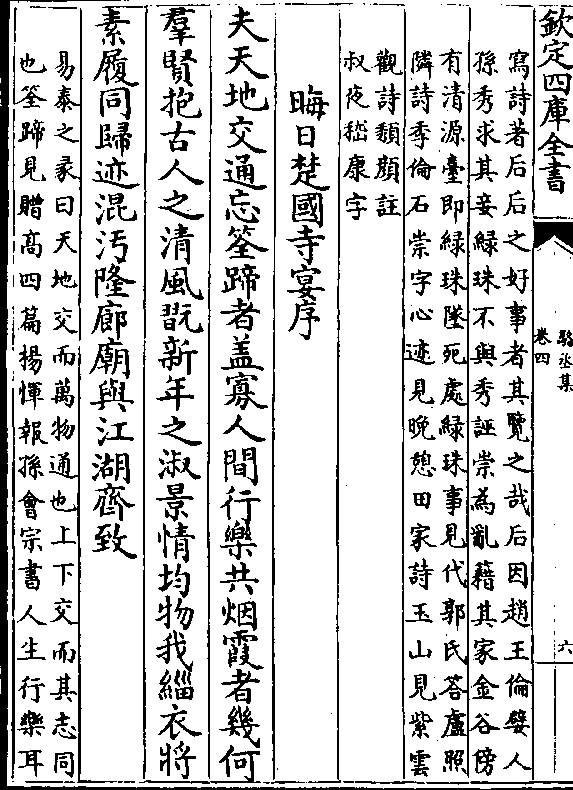 欽定四庫全書
駱丞集
卷四
六
寫詩著后后之好事者其覽之哉后因趙王倫嬖人
孫秀求其妾緑珠不與秀誣崇為亂藉其家金谷傍
有清源臺即緑珠墜死處緑珠事見代郭氏答盧照
隣詩季倫石崇字心迹見晚憩田家詩玉山見紫雲
觀詩頽顔註
叔夜嵇康字
晦日楚國寺宴序
夫天地交通忘筌蹄者盖寡人間行樂共烟霞者幾何
羣賢抱古人之清風翫新年之淑景情均物我緇衣將
素履同歸迹混汚隆廊廟與江湖齊致
易泰之彖曰天地交而萬物通也上下交而其志同
也筌蹄見贈高四篇楊惲報孫會宗書人生行樂耳